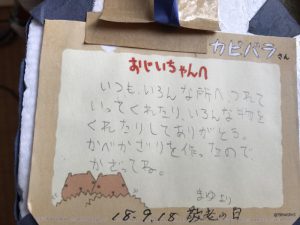 カピバラさん
おじいちゃんへ
いつも、いろんな所へつれて
いってくれたり、いろんな物を
くれたりしてありがとう。
かべかざりを作ったので
かざってね。
まゆより
18.9.18 敬老の日